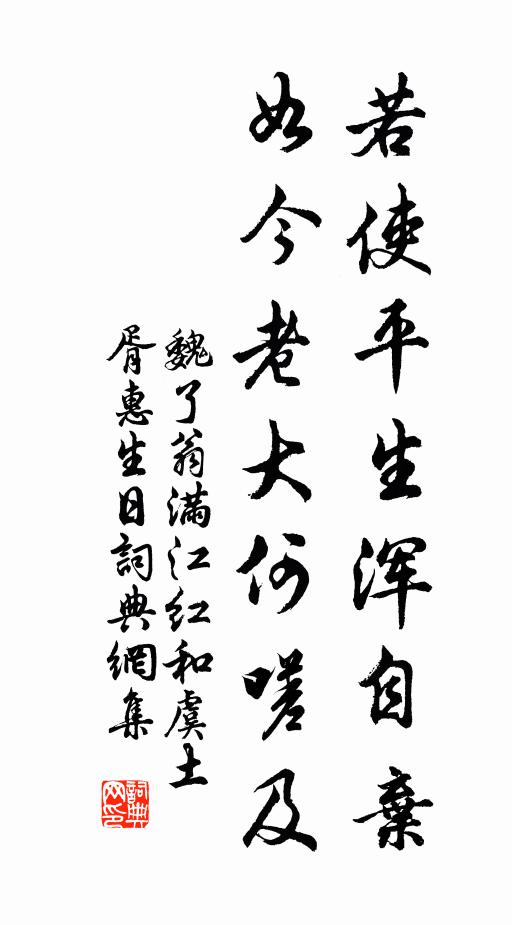 若使平生浑自棄
如今老大何嗟及
魏了翁满江红和虞士
胥惠生日詞典網集
詞典网印